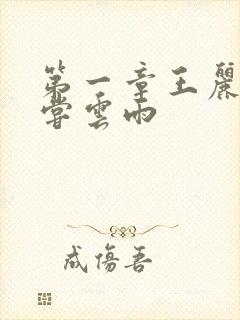 第一章王麗
嘗雲雨
成傷吾